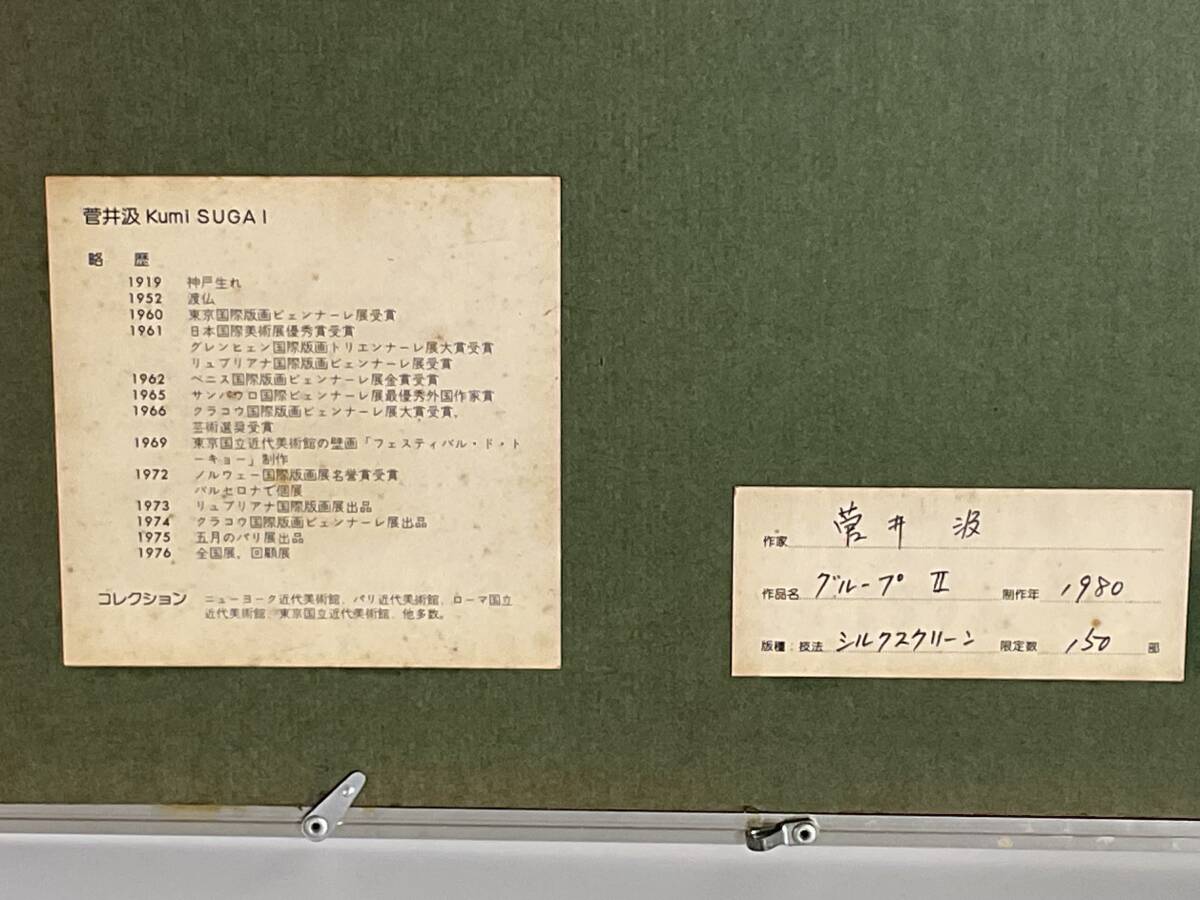 菅井汲 Kumi SUGAI
略 歴
1919 神戸生れ
1952 渡仏
1960 東京国際版画ビェンナーレ展受賞
1961 日本国際美術展優秀賞受賞
グレンヒェン国際版画トリエンナーレ展大賞受賞
リュブリアナ国際版画ビェンナーレ展受賞
1962 ベニス国際版画ビェンナーレ展金賞受賞
1965 サンパウロ国際ビェンナーレ展最優秀外国作家賞
1966 クラコウ国際版画ビェンナーレ展大賞受賞,
芸術選奨受賞
1969 東京国立近代美術館の壁画「フェスティバル・ド・ト
ーキョー」制作
1972 ノルウェー国際版画展名誉賞受賞
バルセロナで個展
1973 リュブリアナ国際版画展出品
1974 クラコウ国際版画ビェンナーレ展出品
1975 五月のパリ展出品
1976 全国展, 回顧展
コレクション ニューヨーク近代美術館, パリ近代美術館, ローマ国立
近代美術館, 東京国立近代美術館, 他多数。
作家 菅井 汲
作品名 グループ II 制作年 1980
版種:技法 シルクスクリーン 限定数 150 部